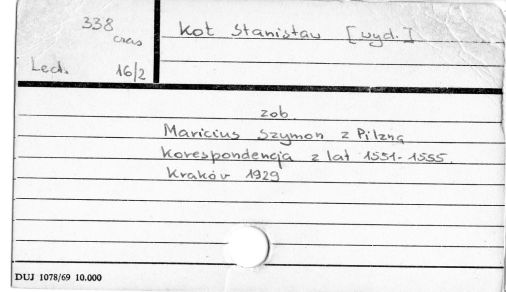 338
czas
Kot Stanisław [wyd.]
Lect. 16/2
zob.
Maricius Szymon z Pilzna
Korespondencja z lat 1551-1555.
Kraków 1929
DUJ 1078/69 10.000